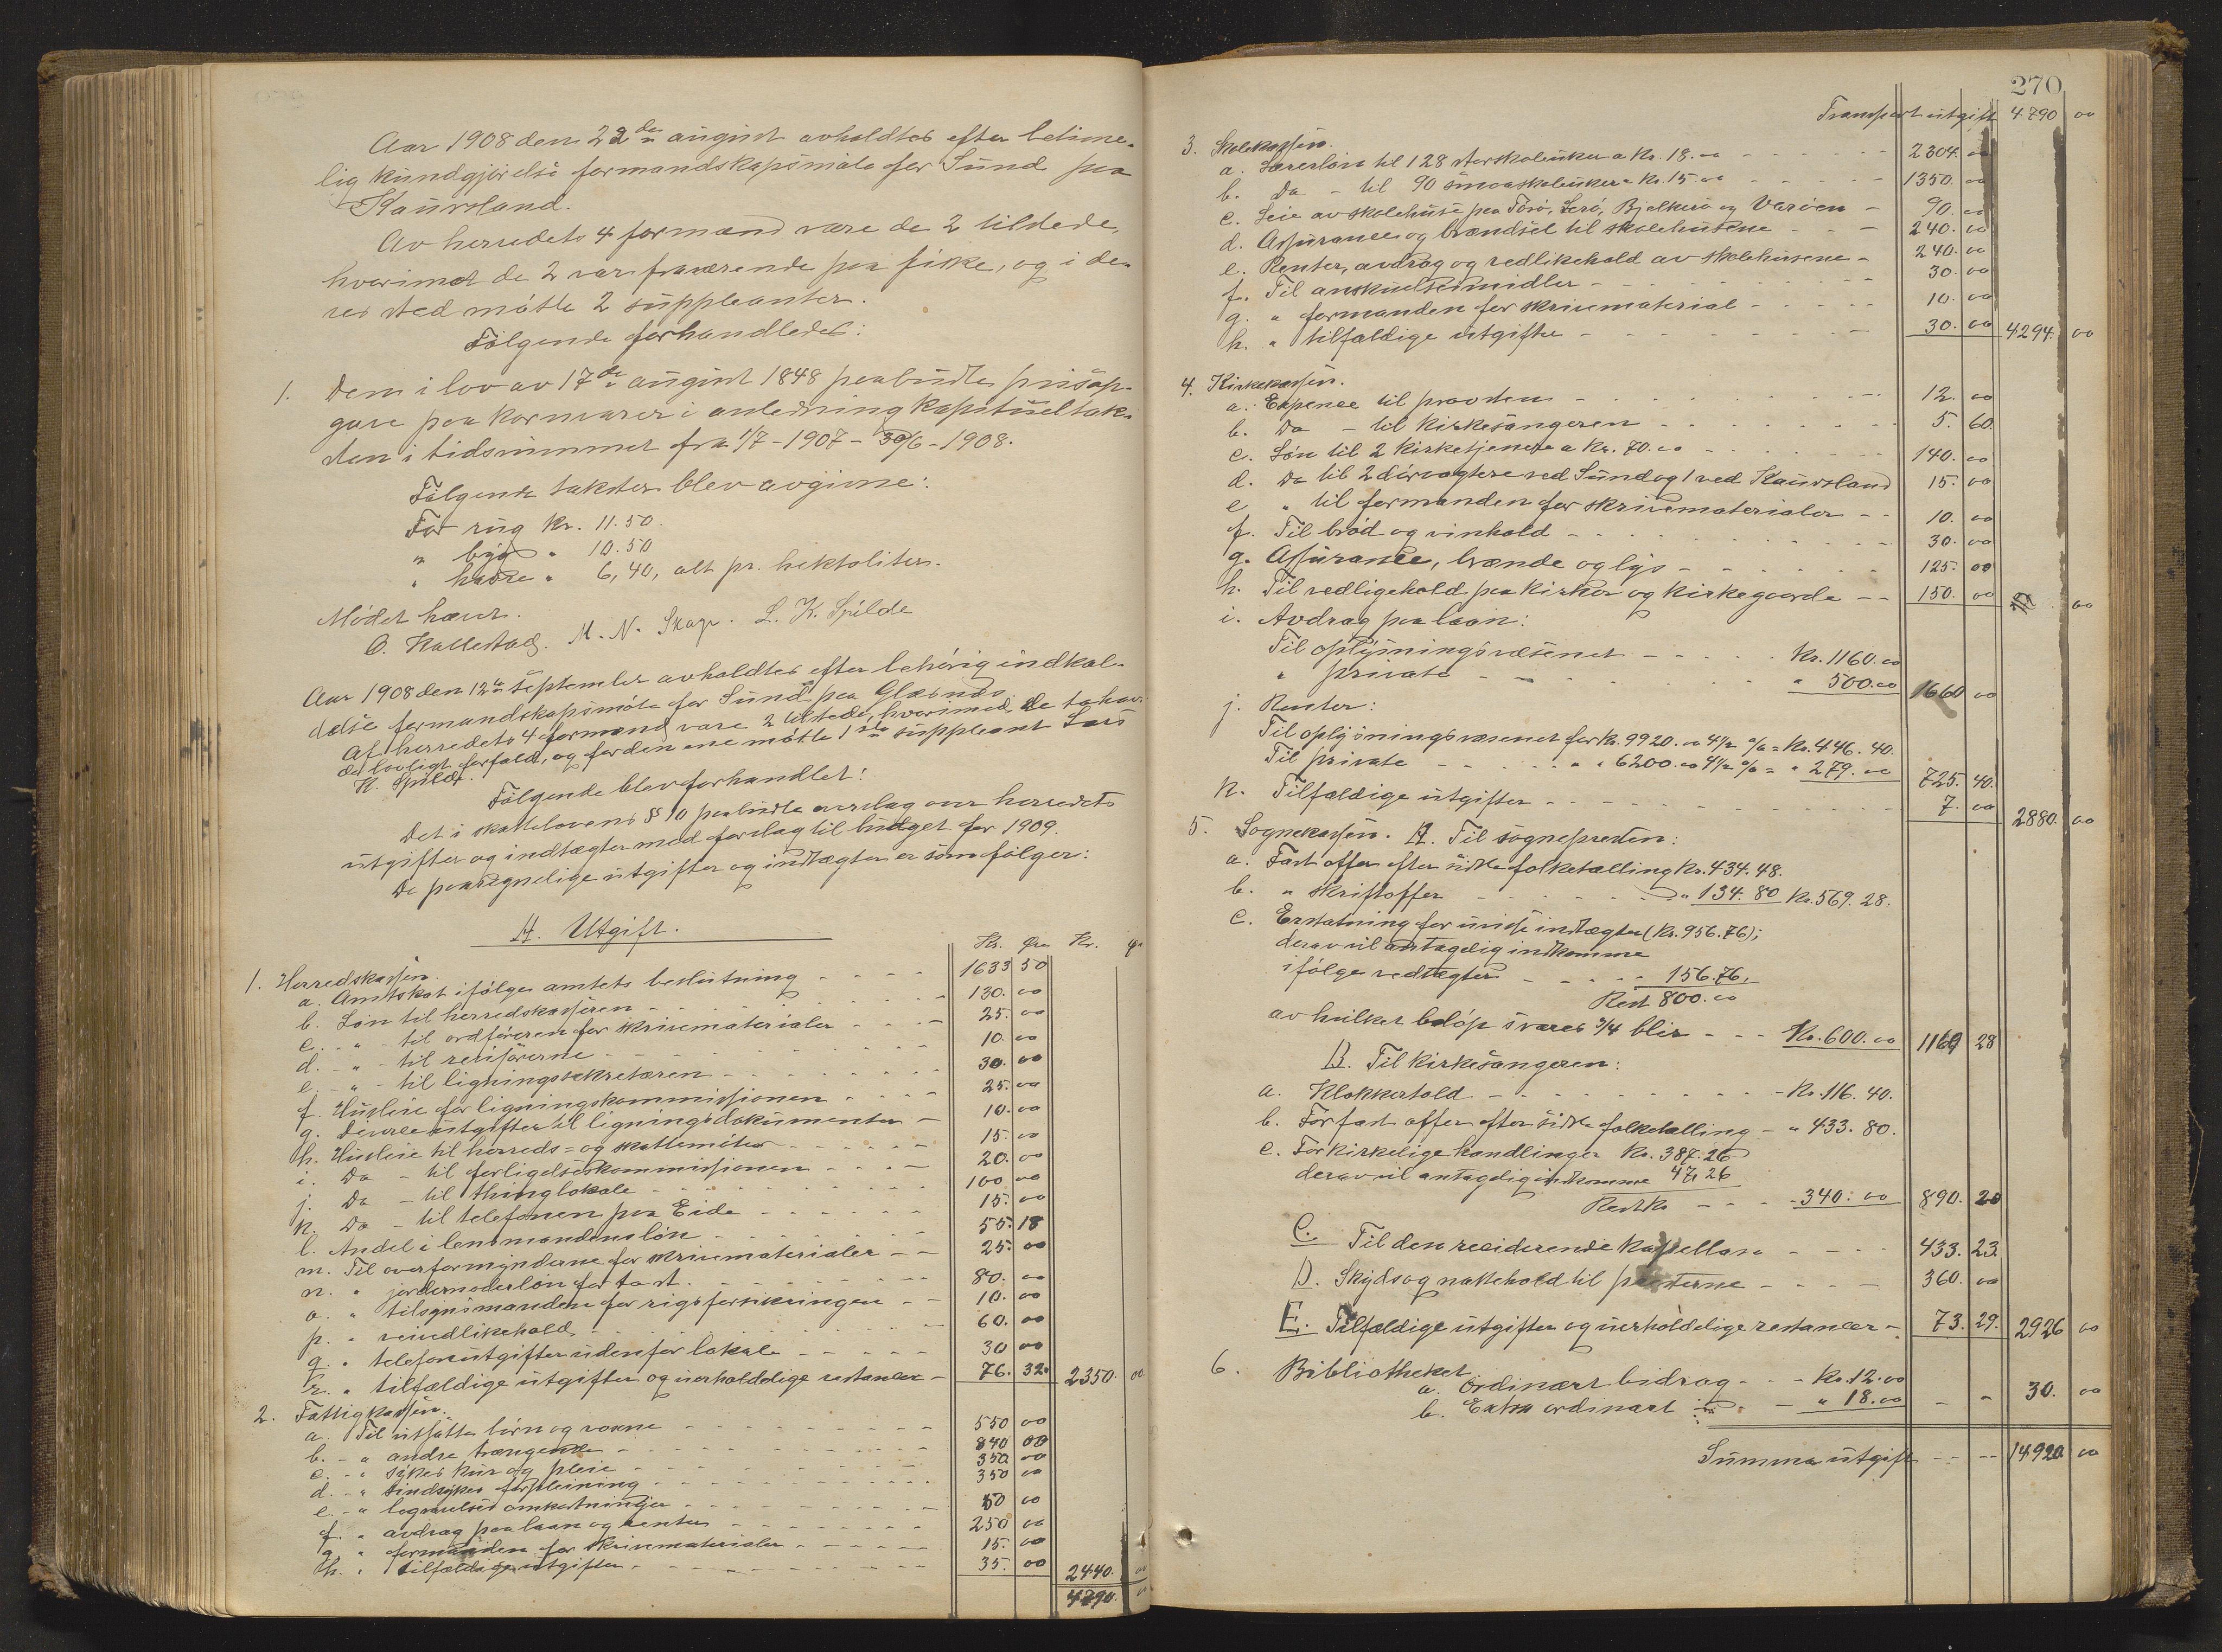 Aar 1908 den 22de august avholdtes efter betime-
lig kundgjörelse formandskapsmöte for Sund paa
Kaursland.
Av herredets 4 formænd vare de 2 tilstede,
hvorimot de 2 var fraværende paa fiske, og i de-
res sted mötte 2 suppleanter.
Følgende forhandledes:
1. Dem i lov av 17de august 1848 paabudte prisop-
gave paa kornvarer i anledning kapitueltak-
sten i tidsrummet fra 1/7 - 1907 - 30/6 - 1908.
Følgende takster blev avgivne:
For rug Kr. 11.50.
" byg " 10.50
" havre " 6,40, alt pr. hektoliter.
Mødet hævet.
O. Hallestad. M. N. Skage. L. K. Spilde
Aar 1908 den 12te September avholdtes efter behörig indkal-
delse formandskapsmöte for Sund paa Glæsnæs
Af herredets 4 formænd vare 2 tilstede, hvorimod de to hav-
de lovligt forfald, og for den ene mötte 1ste suppleant Lars
K. Spilde.
Følgende blev forhandlet:
Det i skattelovens §§ 10 paabudte overslag over herredets
utgifter og indtægter med forslag til budget for 1909.
De paaregnelige utgifter og indtægter er som følger:
A. Utgift.
Kr. Øre Kr. Ø
1. Herredskassen.
a. Amtskat ifølge amtets beslutning - - - - 1633 50
b. Løn til herredskassereren - - - - 130. 00
c. - " - til ordföreren for skrivematerialer - - - 25. 00
d. - " - til revisorerne - - - - 10. 00
e. - " - til ligningssekretæren - - - - 30. 00
f. Husleie for ligningskommissionen - - - - 25. 00
g. Diverse utgifter til ligningsdokumenter - 10. 00
h. Husleie til herreds= og skattemöter - - - - 15. 00
i. Do - til forligelseskommissionen - - - - 20. 00
j. Do - til thinglokale - - - - 100 00
k. Do - til telefonen paa Eide - - - - 15. 00
l. Andel i lensmandens løn - - - - 55. 18
m. Til overformynderne for skrivematerialer - - 25. 00
n. " jordemoderløn for fast. - - - - 80. 00
o. " tilsynsmanden for rigsforsikringen - - 10. 00
p. " veivedlikehold. - - - - 60. 00
q. " telefonutgifter udenfor lokale - - - - 30 00
r. " tilfældige utgifter og uerholdelige restancer - 76. 32. 2350. 00
2. Fattigkassen.
a. Til utsatte börn og voxne - - - - 550 00
b. - " andre trængende - - - - 840 00
c. - " sykes kur og pleie - - - - 350 00
d. - " sindsykes forpleining - - - - 350 00
e. - " begravelses omkostninger - - - - 50 00
f. " avdrag paa laan og renter - - - - 250 00
g. " formanden for skrivematerialer - - - - 15. 00
h. " tilfældige utgifter - - - - 35. 00 2440. 00
4790. 00
270
Transport utgift 4790 00
3. Skolekassen.
a. Lærerløn til 128 storskoleuker a Kr. 18.00 - - - - 2304. 00
b. Do - til 90 smaaskoleuker a Kr. 15.00 - - - - 1350. 00
c. Leie av skolehuse paa Torö, Lerö, Bjelkerö og Varöen - 90. 00
d. Assurance og brændsel til skolehusene - - - 240. 00
e. Renter, avdrag og vedlikehold av skolehusene - 240. 00
f. Til anskuelsesmidler - - - - 30. 00
g. " formanden for skrivematerial - - - - 10. 00
h. " tilfældige utgifter - - - - 30. 00 4294. 00
4. Kirkekassen.
a. Expence til provsten - - - - 12. 00
b. Do - til kirkesangeren - - - - 5. 60.
c. Løn til 2 kirketjenere a Kr. 70.00 - - - - 140. 00
d. Do til 2 dörvogtere ved Sund og 1 ved Kaursland 15. 00
e " til formanden for skrivematerialer - - 10. 00
f. Til bröd og vinhold - - - - 30. 00
g. Assurance, brænde og lys - - - - 125. 00
h. Til vedligehold paa kirker og kirkegaarde - - 150. 00 00
i. Avdrag paa laan:
Til oplysningsvæsenet - - - - Kr. 1160.00
" private - - - - " 500.00 1660 00
j. Renter:
Til oplysningsvæsenet for Kr. 9920.00 4½ % = Kr. 446.40.
Til private - - - - " " 6200.00 4½ % = " 279.00 725. 40.
k. Tilfældige utgifter - - - - 7. 00 2880. 00
5. Sognekassen. A. Til sognepresten:
a. Fast offer efter sidste folketælling Kr. 434.48.
b. " skriftoffer - - - - " 134.80 Kr. 569.28.
c. Erstatning for uvisse indtægter (Kr. 956.76);
derav vil antagelig indkomme
ifølge vedtægter - - - - 156.76.
Rest 800.00
av hvilket belöp svares 3/4 blir - - - Kr. 600.00 1169 28
B. Til kirkesangeren:
a. Klokkertold - - - - Kr. 116.40.
b. For fast offer efter sidste folketælling - " 433.80.
c. For kirkelige handlinger Kr. 387.26
derav vil antagelig indkomme 47.26
Rest Kr - - - - 340.00 890. 20
C. Til den residerende kapellan - - - - 433. 23.
D. Skyds og nattehold til presterne - - - - 360. 00
E. Tilfældige utgifter og uerholdelige restancer - 73. 29. 2926 00
6. Bibliotheket
a. Ordinært bidrag - - - Kr. 12.00
b. Extra ordinært - - " 18.00 - - 30. 00
Summa utgift - - - - 14920 00